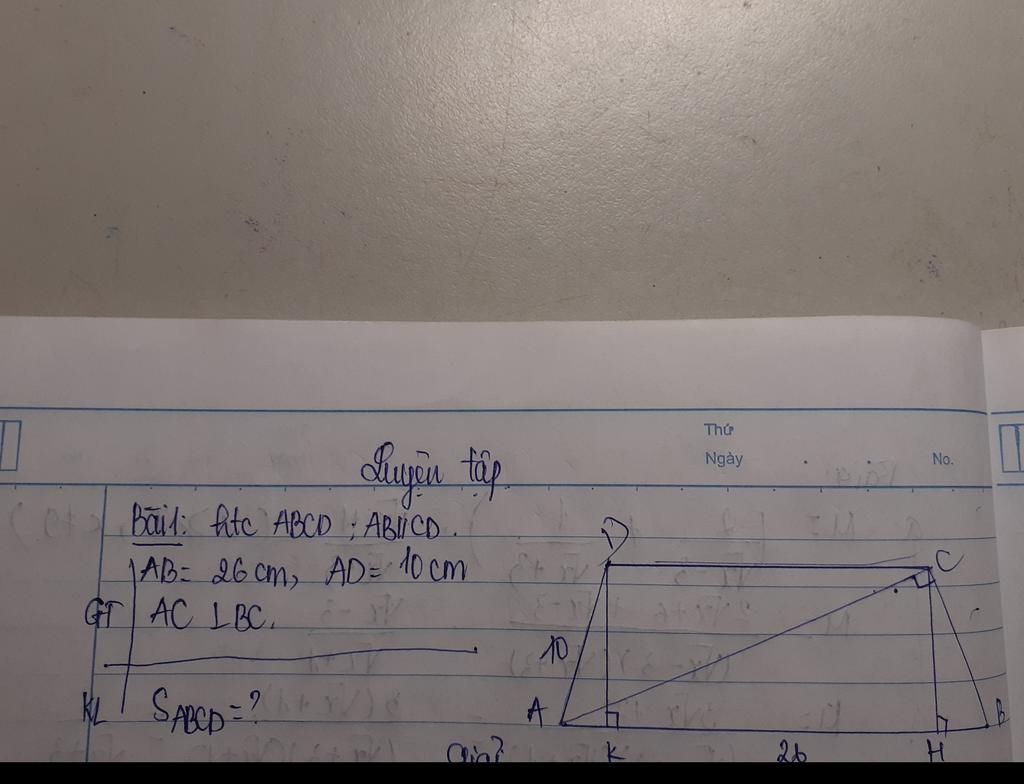 Thứ
Ngày
No.
Luyện tập
Bài 1: htc ABCD ; AB//CD.
GT
AB = 26 cm, AD = 10 cm
AC ⊥ BC.
KL
S ABCD = ?
D
C
10
A
K
26
H
B